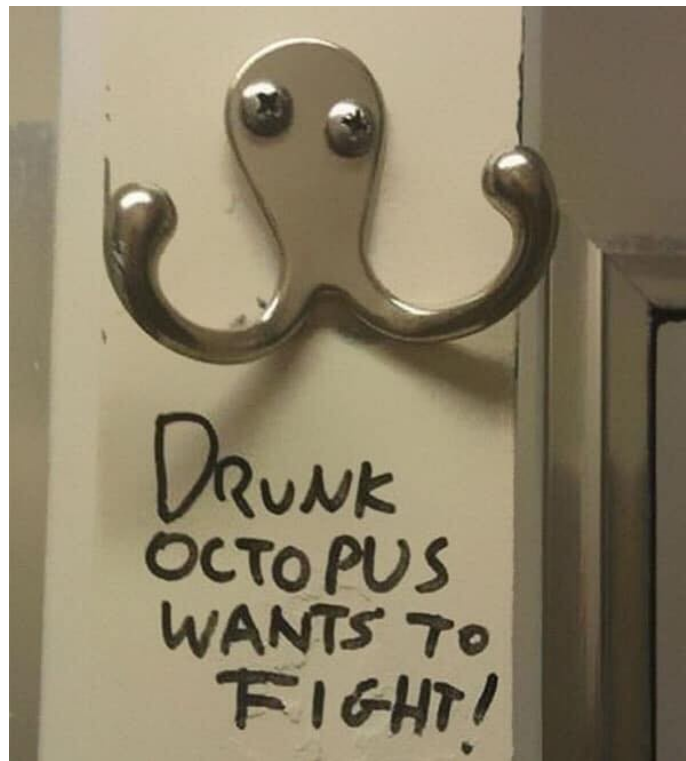 DRUNK
OCTOPUS
WANTS TO
FIGHT!